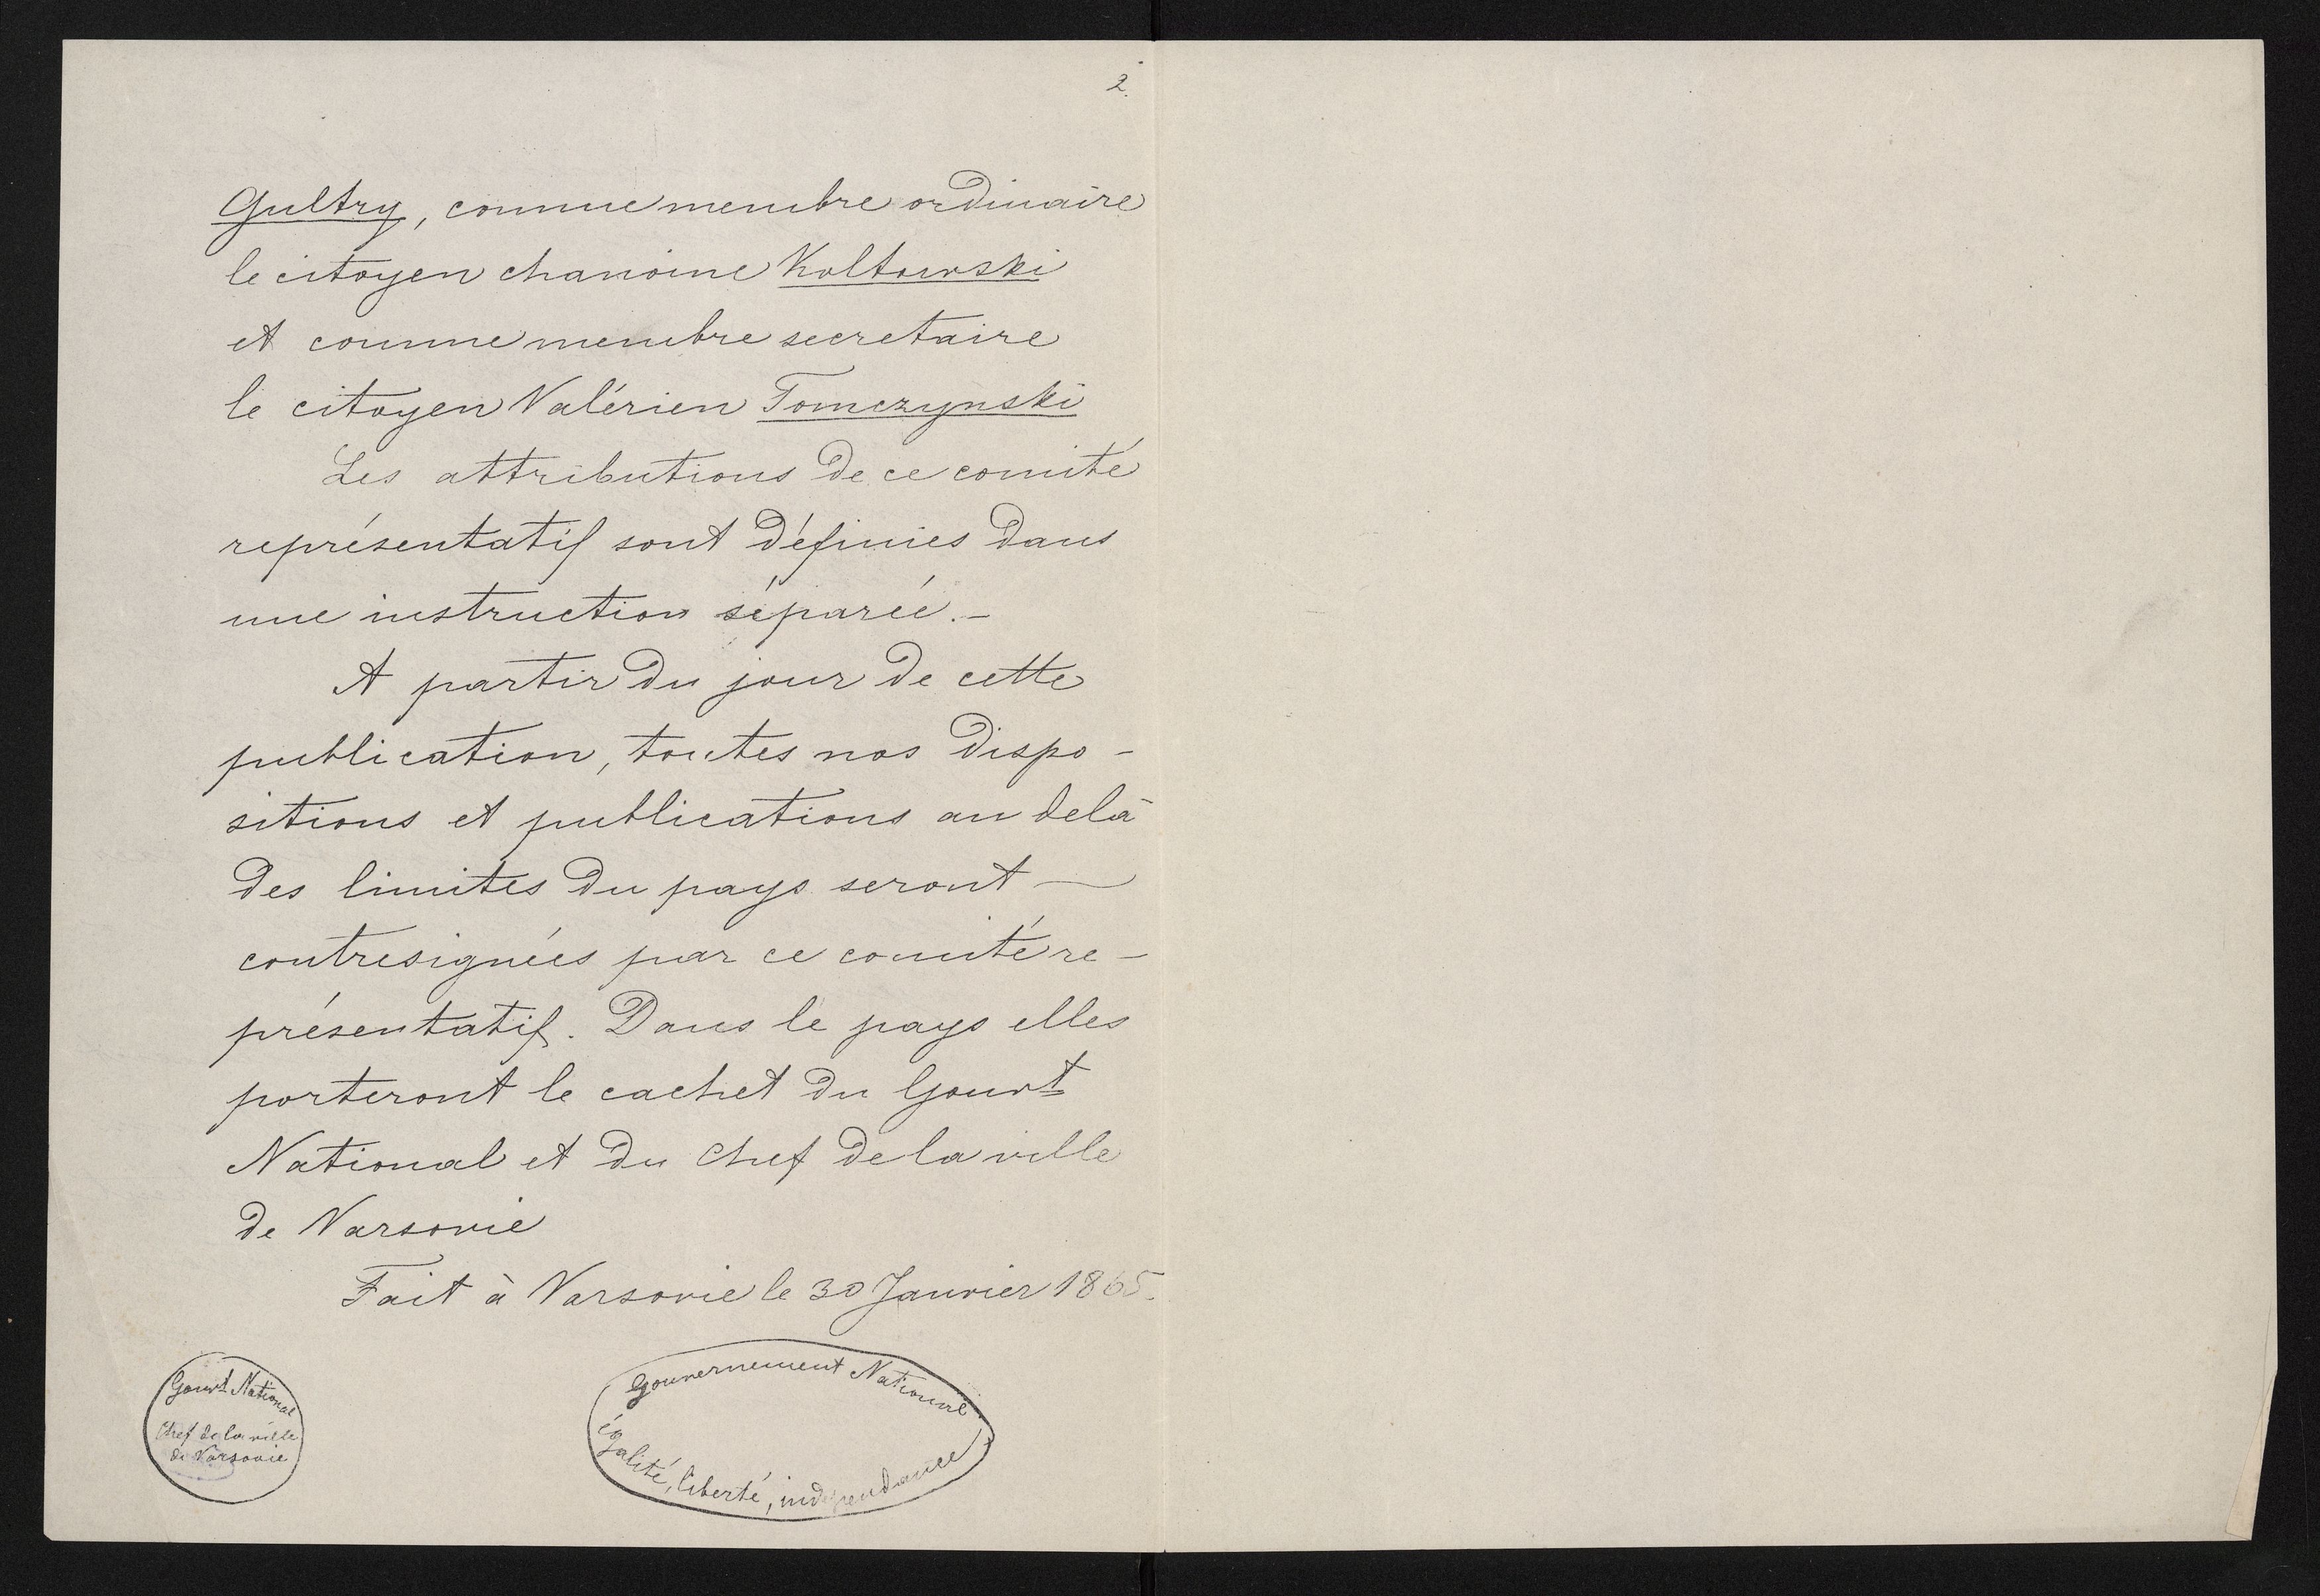 2.
Gultry, comme membre ordinaire
le citoyen chanoine Koltowski
et comme membre secretaire
le citoyen Valérien Tomczynski
Les attributions de ce comité
représentatif sont définies dans
une instruction séparée.-
A partir du jour de cette
publication, toutes nos dispo-
sitions et publications au delà
des limites du pays seront —
contresignées par ce comité re-
présentatif. Dans le pays elles
porteront le cachet du Gouvt
National et du Chef de la ville
de Varsovie
Fait à Varsovie le 30 Janvier 1865.
Gouvt National
Chef de la ville
de Varsovie
Gouvernement National
égalité, liberté, indépendance